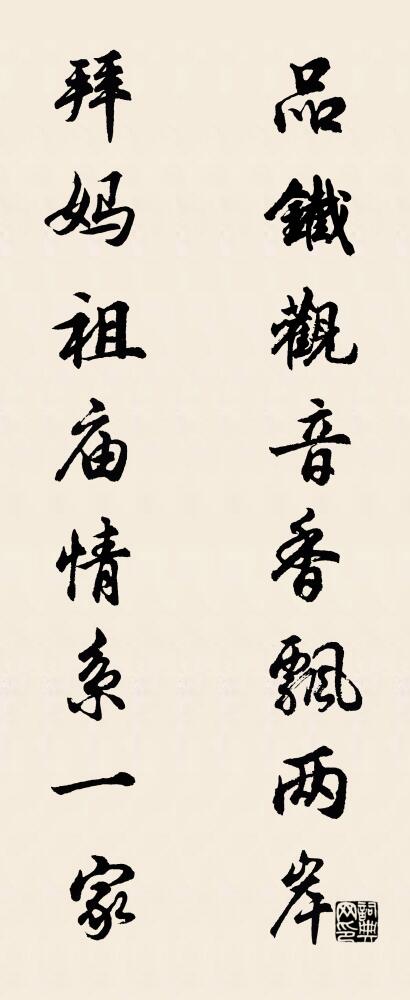 品鐵觀音香飄两岸
拜妈祖庙情系一家
詞典网印